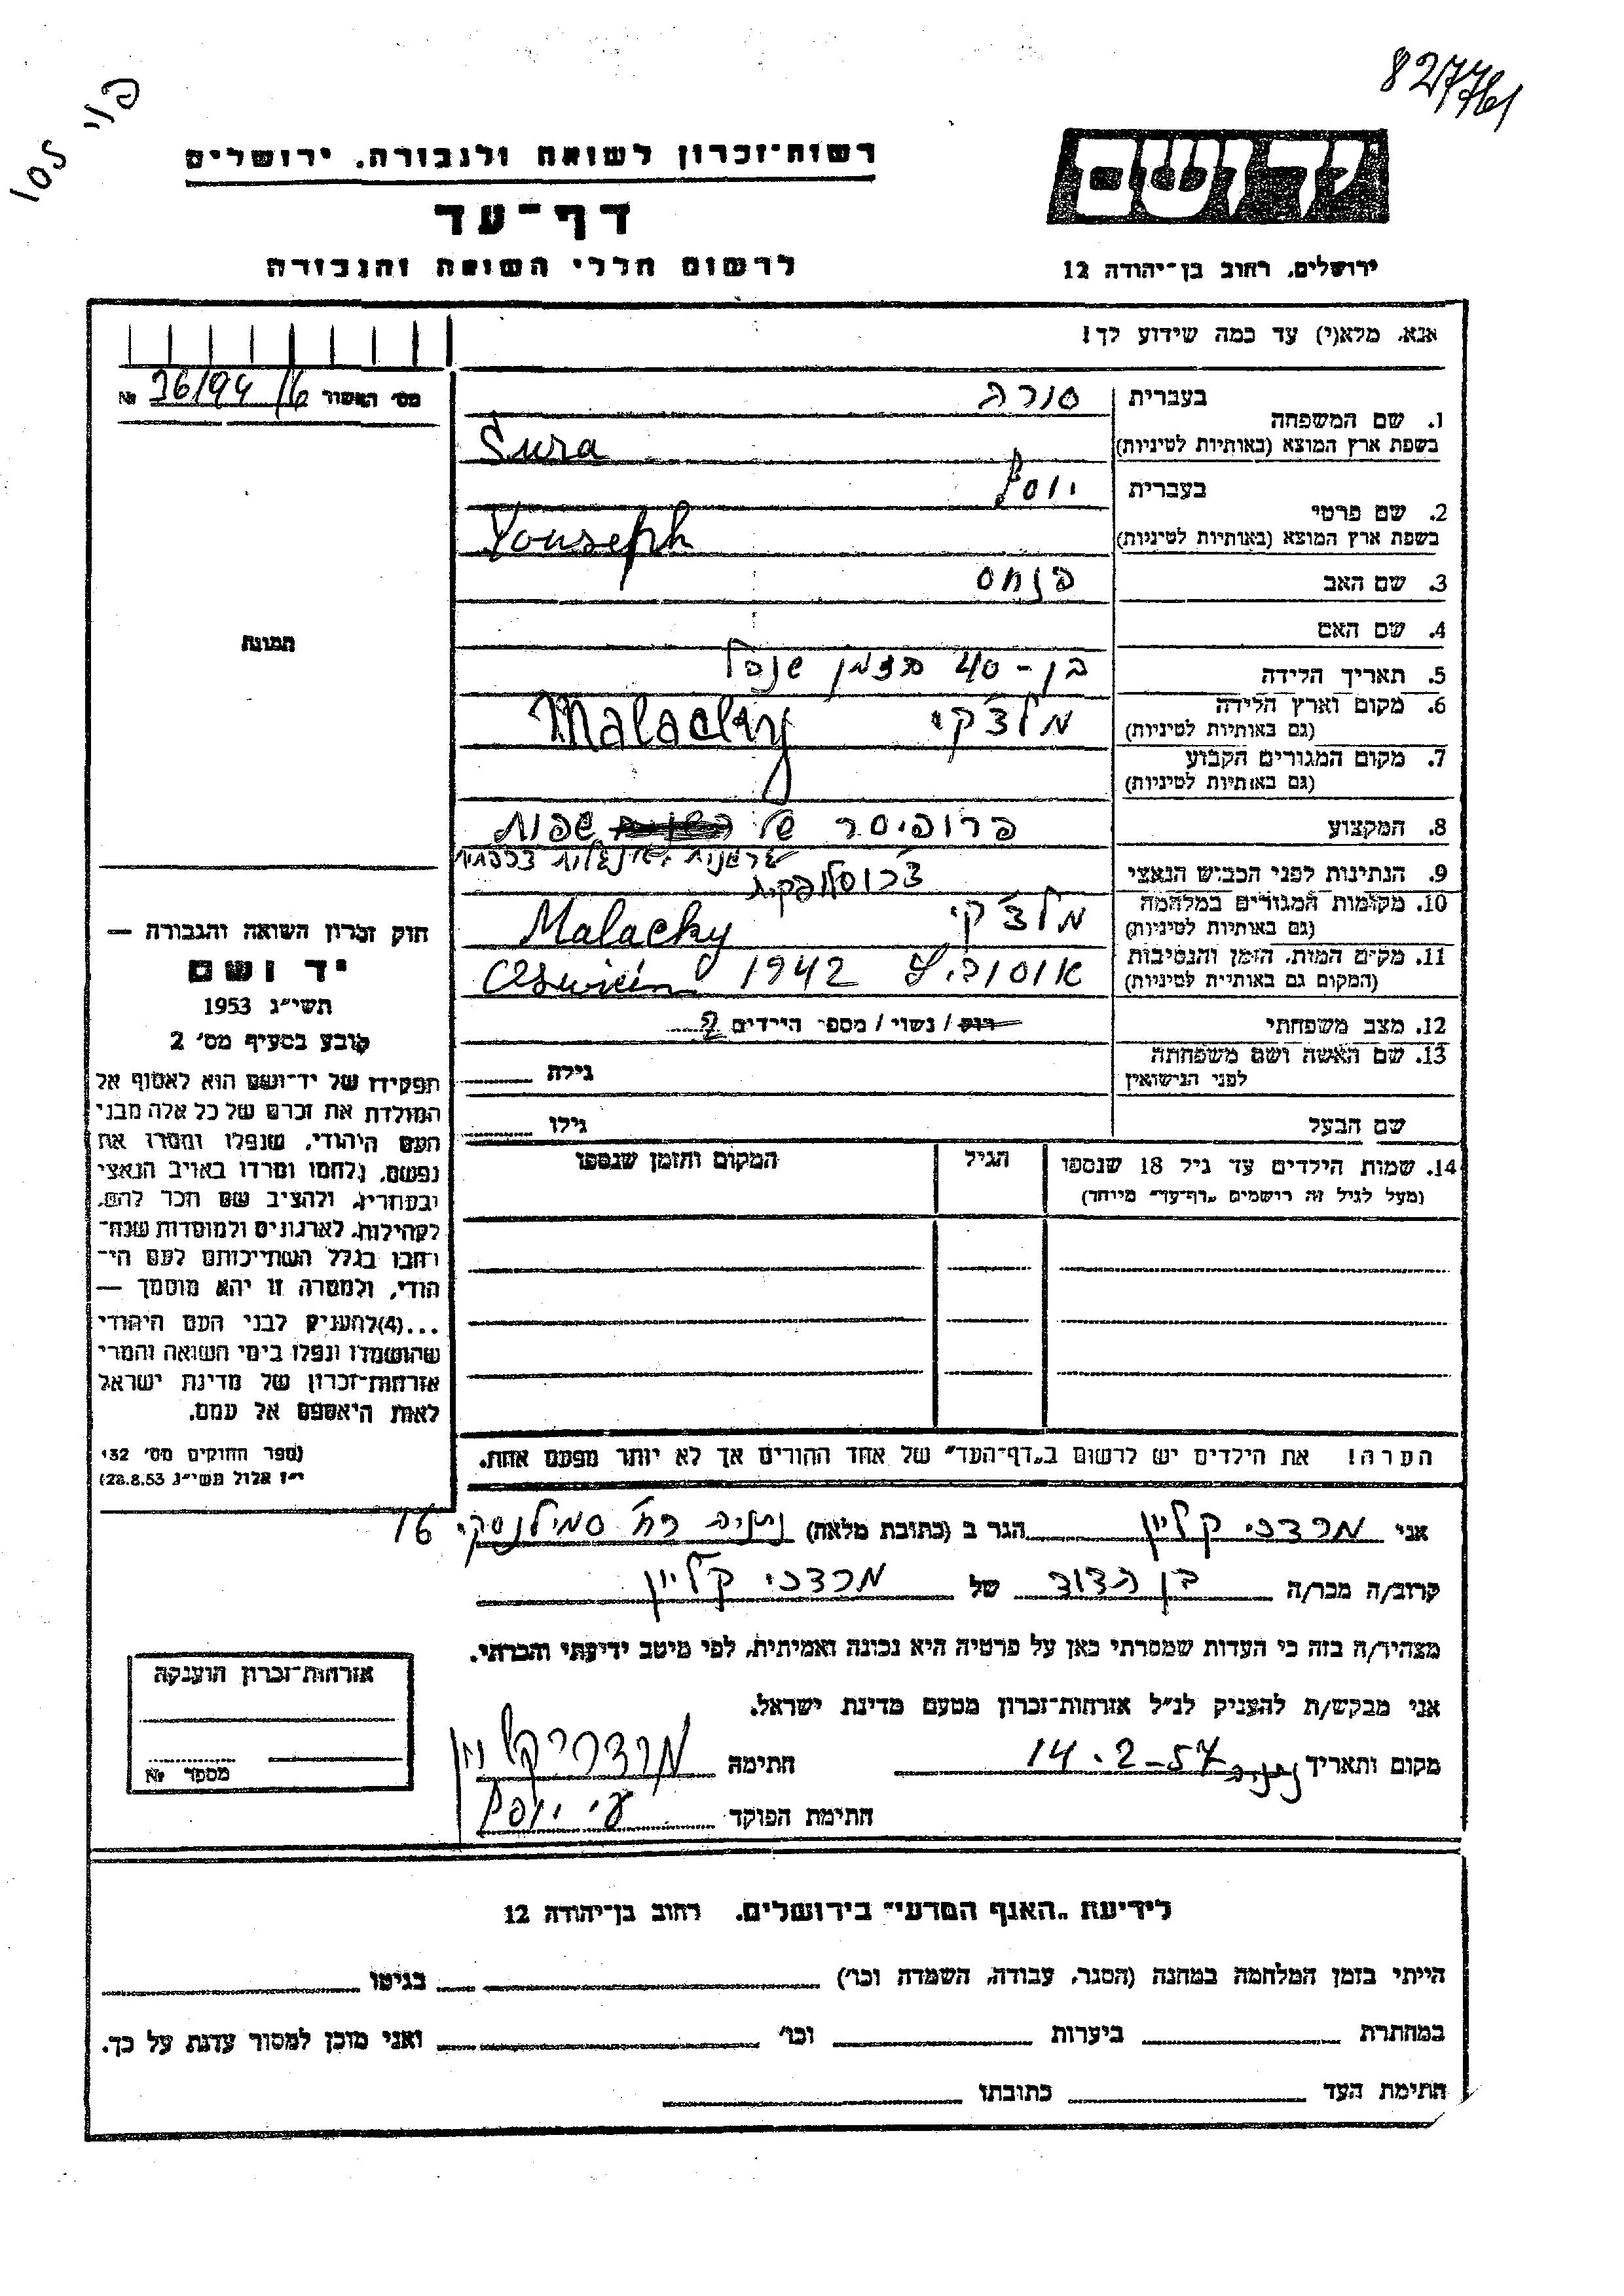 827761
105 פוי
ידושם
ירושלים, רחוב בן־יהודה 12
רשות־זכרון לשואה ולגבורה, ירושלים
דף־עד
לרשום חללי השואה והגבורה
אנא, מלא(י) עד כמה שידוע לך!
מס׳ האשור 16/94/36 №
1. שם המשפחה בעברית סורה
בשפת ארץ המוצא (באותיות לטיניות) Sura
2. שם פרטי בעברית יוסף
בשפת ארץ המוצא (באותיות לטיניות) Youseph
3. שם האב פנחס
4. שם האם
5. תאריך הלידה בן - 40 בזמן שנפל
6. מקום וארץ הלידה מלצ׳קי Malacky
(גם באותיות לטיניות)
7. מקום המגורים הקבוע
(גם באותיות לטיניות)
8. המקצוע פרופיסר של שפות
9. הנתינות לפני הכביש הנאצי צ׳כוסלובקית
10. מקומות המגורים במלחמה מלצ׳קי Malacky
(גם באותיות לטיניות)
11. מקום המות, הזמן והנסיבות 1942
(המקום גם באותיות לטיניות)
12. מצב משפחתי רווק / נשוי / מספר הילדים 2
13. שם האשה ושם משפחתה
לפני הנישואין גילה
שם הבעל גילו
14. שמות הילדים עד גיל 18 שנספו הגיל המקום והזמן שנספו
(מעל לגיל זה רושמים „דף־עד״ מיוחד)
הערה! את הילדים יש לרשום ב„דף־העד״ של אחד ההורים אך לא יותר מפעם אחת.
תמונה
חוק זכרון השואה והגבורה —
יד ושם
תשי״ג 1953
קובע בסעיף מס׳ 2
תפקידו של יד־ושם הוא לאסוף אל
המולדת את זכרם של כל אלה מבני
העם היהודי, שנפלו ומסרו את
נפשם, נלחמו ומרדו באויב הנאצי
ובעוזריו, ולהציב שם וזכר להם,
לקהילות, לארגונים ולמוסדות שנח־
רבו בגלל השתייכותם לעם הי־
הודי, ולמטרה זו יהא מוסמך —
...(4)להעניק לבני העם היהודי
שהושמדו ונפלו בימי השואה והמרי
אזרחות־זכרון של מדינת ישראל
לאות היאספם אל עמם.
(ספר החוקים מס׳ 132
י״ז אלול תשי״ג 28.8.53)
אני מרדכי קליין הגר ב (כתובת מלאה) נתניה רח׳ סמילנסקי 16
קרוב/ה מכר/ה בן הדוד של מרדכי קליין
מצהיר/ה בזה כי העדות שמסרתי כאן על פרטיה היא נכונה ואמיתית, לפי מיטב ידיעתי והכרתי.
אני מבקש/ת להעניק לנ״ל אזרחות־זכרון מטעם מדינת ישראל.
מקום ותאריך נתניה 14.2-57 חתימה מרדכי קליין
חתימת הפוקד ע׳ יוסף
אזרחות־זכרון הוענקה
מספר №
לידיעת „האגף המדעי״ בירושלים, רחוב בן־יהודה 12
הייתי בזמן המלחמה במחנה (הסגר, עבודה, השמדה וכו׳) בגיטו
במחתרת ביערות וכו׳ ואני מוכן למסור עדות על כך.
חתימת העד כתובתו